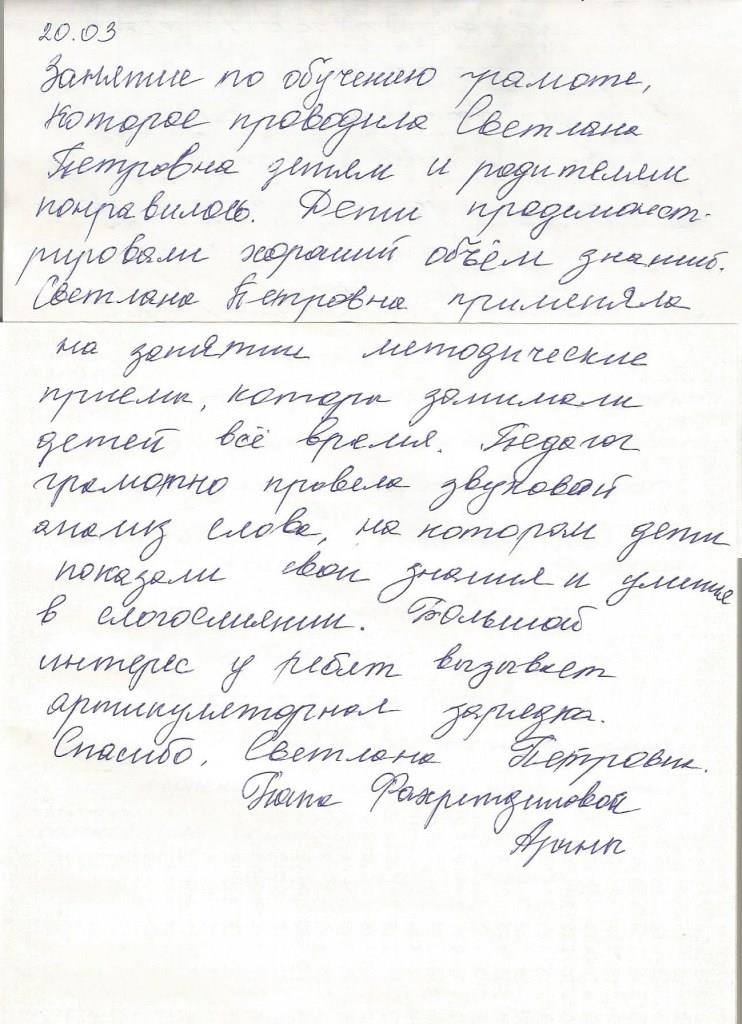 20.03
Занятие по обучению грамоте,
которое проводила Светлана
Петровна детям и родителям
понравилось. Дети продемонст-
рировали хороший объём знаний.
Светлана Петровна применяла
на занятии методические
приемы, которы занимали
детей всё время. Педагог
грамотно провела звуковой
анализ слова, на котором дети
показали свои знания и умение
в слогослиянии. Большой
интерес у ребят вызывает
артикуляторная зарядка.
Спасибо, Светлана Петровна.
Папа Фахретдиновой
Арины